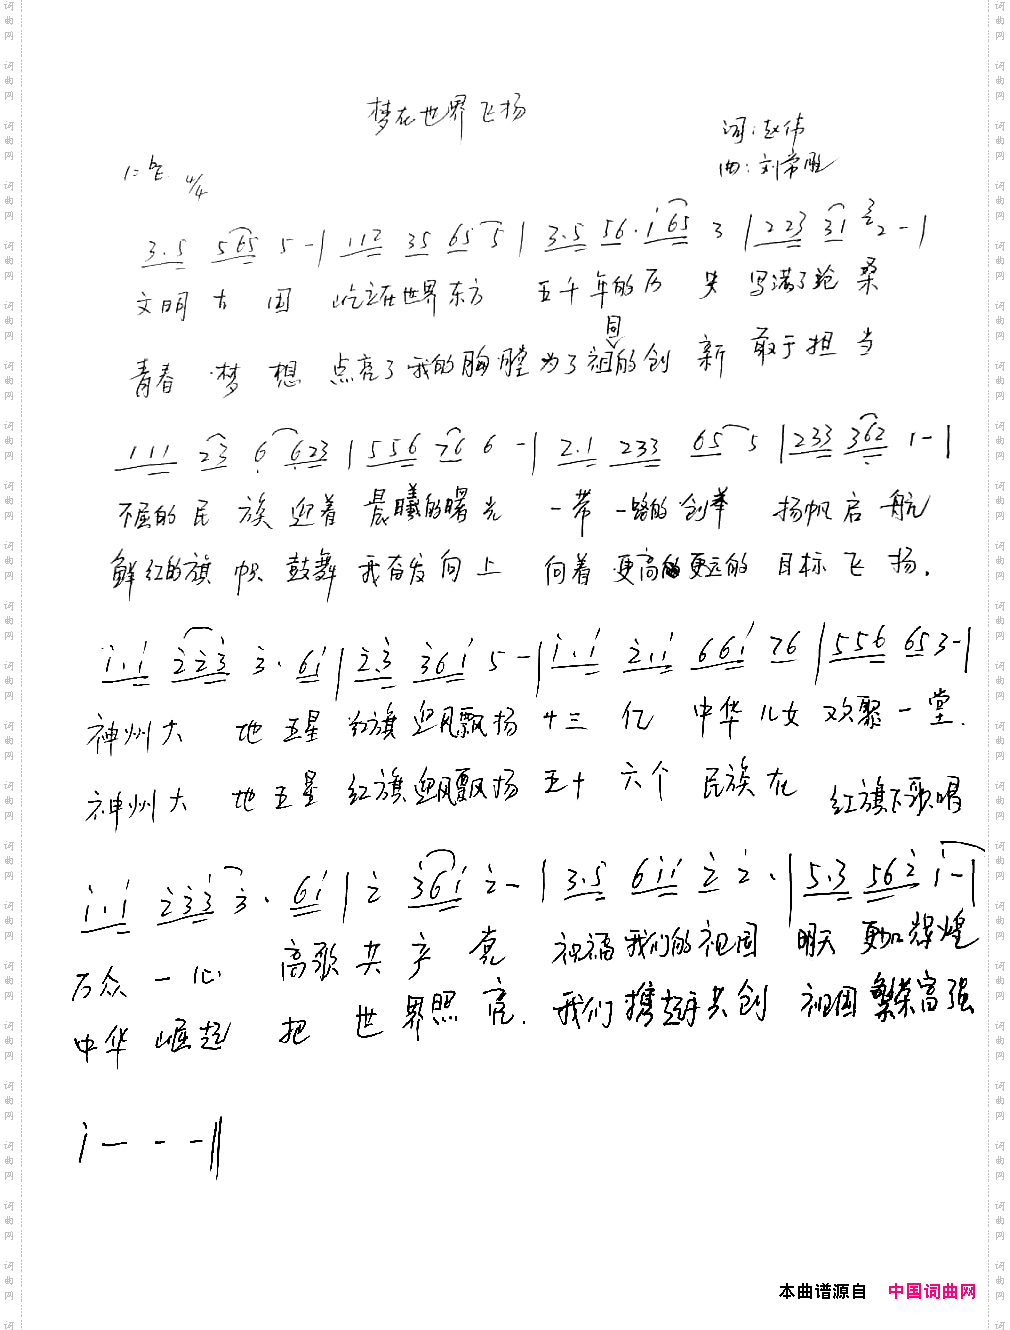 梦在世界飞扬
词:赵伟
1=♭E 4/4
曲:刘常胜
3.5 565 5 - | 112 35 65 5 | 3.5 56.i65 3 | 223 31 2 - |
文明古国 屹立在世界东方 五千年的历史 写满了沧桑
同
青春梦想 点亮了我的胸膛 为了祖的创新 敢于担当
111 23 6 623 | 556 76 6 - | 2.1 233 65 5 | 233 362 1 - |
不屈的民族 迎着晨曦的曙光 一带一路的创举 扬帆启航
鲜红的旗帜 鼓舞我奋发向上 向着更高的更远的目标飞扬.
i.i 223 3. 6i | 2.3 36i 5 - | i.i 2.i 66i 76 | 556 653 - |
神州大地 五星红旗迎风飘扬 十三亿中华儿女欢聚一堂.
神州大地五星红旗迎风飘扬 五十六个民族在红旗下歌唱
i.i 233i 3. 6i | 2 36i 2 - | 3.5 6ii 2 2. | 5.3 562 i - |
万众一心 高歌共产党 祝福我们的祖国 明天更加辉煌
中华崛起 把世界照亮. 我们携起手共创 祖国繁荣富强
i - - - ‖
本曲谱源自 中国词曲网